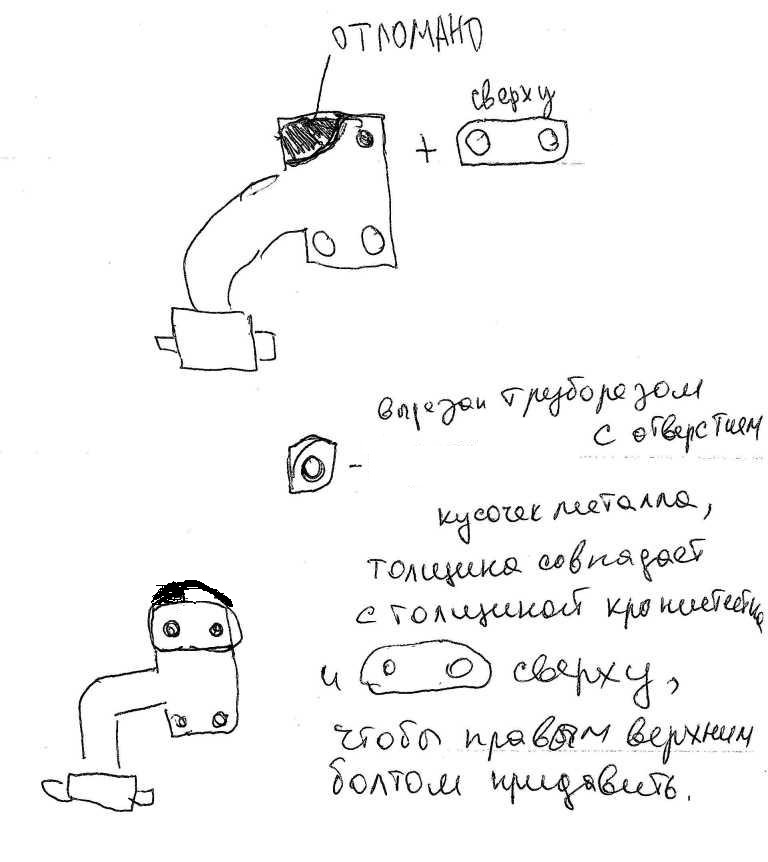 ОТЛОМАНО
сверху
+
вырезан труборезом
с отверстием
-
кусочек металла,
толщина совпадает
с толщиной кронштейна
и сверху,
чтобы правым верхним
болтом придавить.